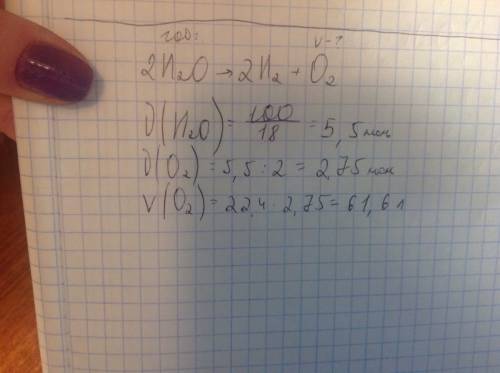 100г V-?
2H₂O → 2H₂ + O₂
ν(H₂O) = 100/18 = 5,5 моль
ν(O₂) = 5,5 : 2 = 2,75 моль
V(O₂) = 22,4 · 2,75 = 61,6 л